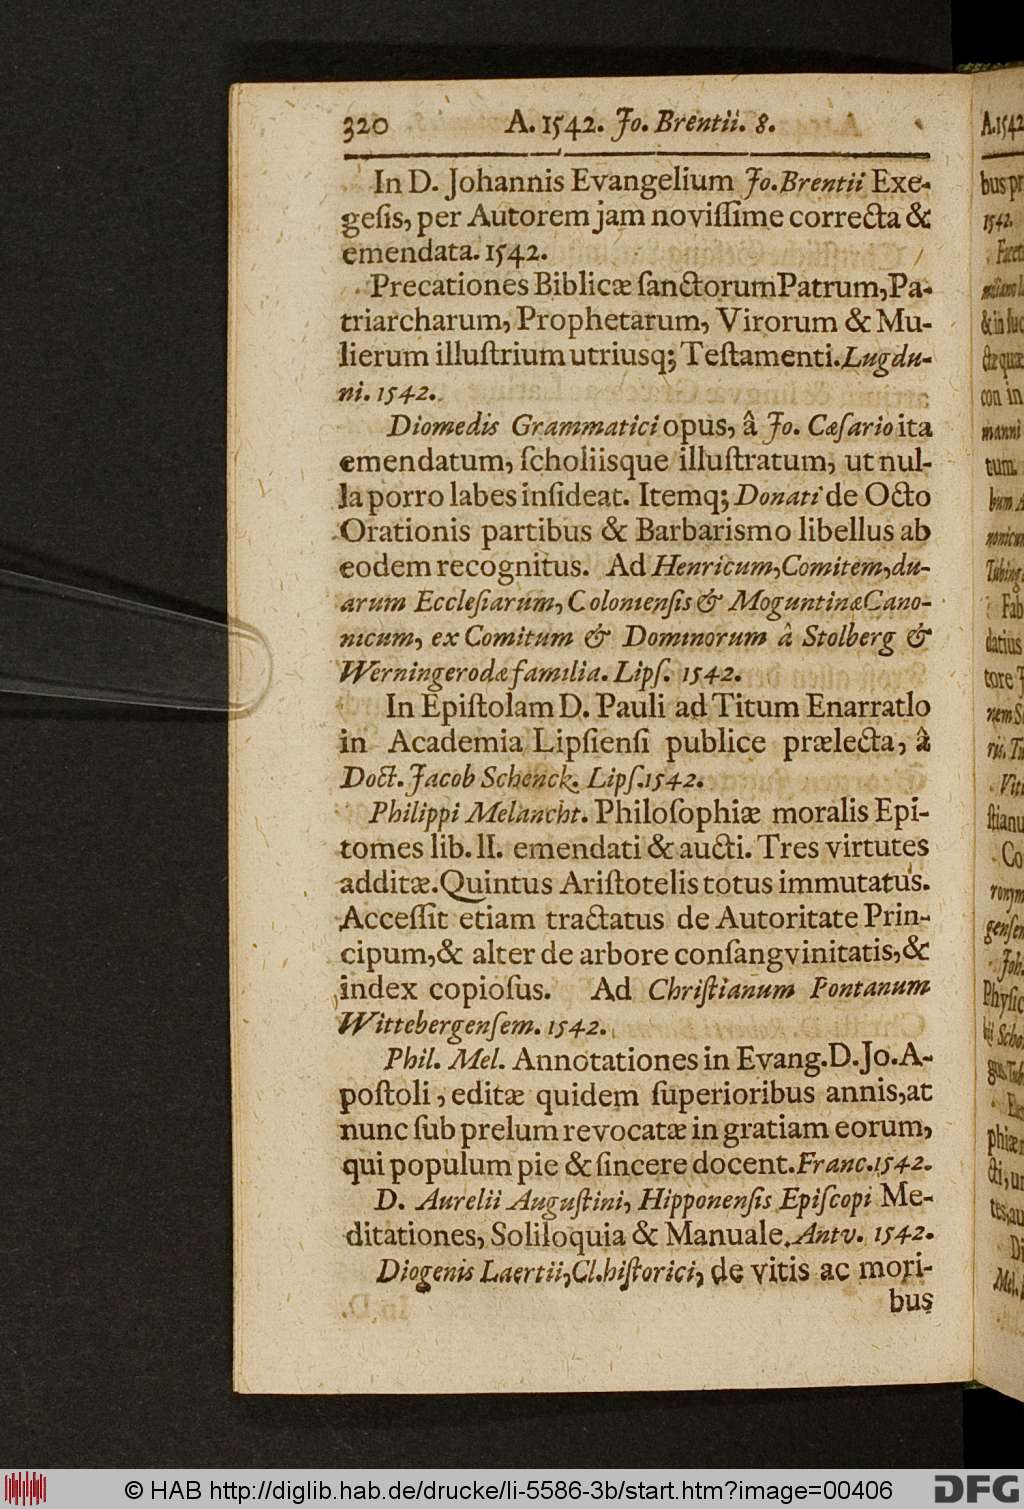 320 A. 1542. Jo. Brentii. 8.
In D. Johannis Evangelium Jo. Brentii Exe-
geſis, per Autorem jam noviſſime correcta &
emendata. 1542.
Precationes Biblicæ ſanctorum Patrum, Pa-
triarcharum, Prophetarum, Virorum & Mu-
lierum illuſtrium utriusq; Teſtamenti. Lugdu-
ni. 1542.
Diomedis Grammatici opus, â Jo. Cæſario ita
emendatum, ſcholiisque illuſtratum, ut nul-
la porro labes inſideat. Itemq; Donati de Octo
Orationis partibus & Barbarismo libellus ab
eodem recognitus. Ad Henricum, Comitem, du-
arum Eccleſiarum, Colonienſis & Moguntinæ Cano-
nicum, ex Comitum & Dominorum â Stolberg &
Werningerodæ familia. Lipſ. 1542.
In Epiſtolam D. Pauli ad Titum EnarratIo
in Academia Lipſienſi publice prælecta, â
Doct. Jacob Schenck. Lipſ. 1542.
Philippi Melancht. Philoſophiæ moralis Epi-
tomes lib. II. emendati & aucti. Tres virtutes
additæ. Quintus Ariſtotelis totus immutatus.
Acceſſit etiam tractatus de Autoritate Prin-
cipum, & alter de arbore conſangvinitatis, &
index copioſus. Ad Chriſtianum Pontanum
Wittebergenſem. 1542.
Phil. Mel. Annotationes in Evang. D. Jo. A-
poſtoli, editæ quidem ſuperioribus annis, at
nunc ſub prelum revocatæ in gratiam eorum,
qui populum pie & ſincere docent. Franc. 1542.
D. Aurelii Auguſtini, Hipponenſis Epiſcopi Me-
ditationes, Soliloquia & Manuale. Antv. 1542.
Diogenis Laertii, Cl. hiſtorici, de vitis ac mori-
bus
© HAB http://diglib.hab.de/drucke/li-5586-3b/start.htm?image=00406
DFG